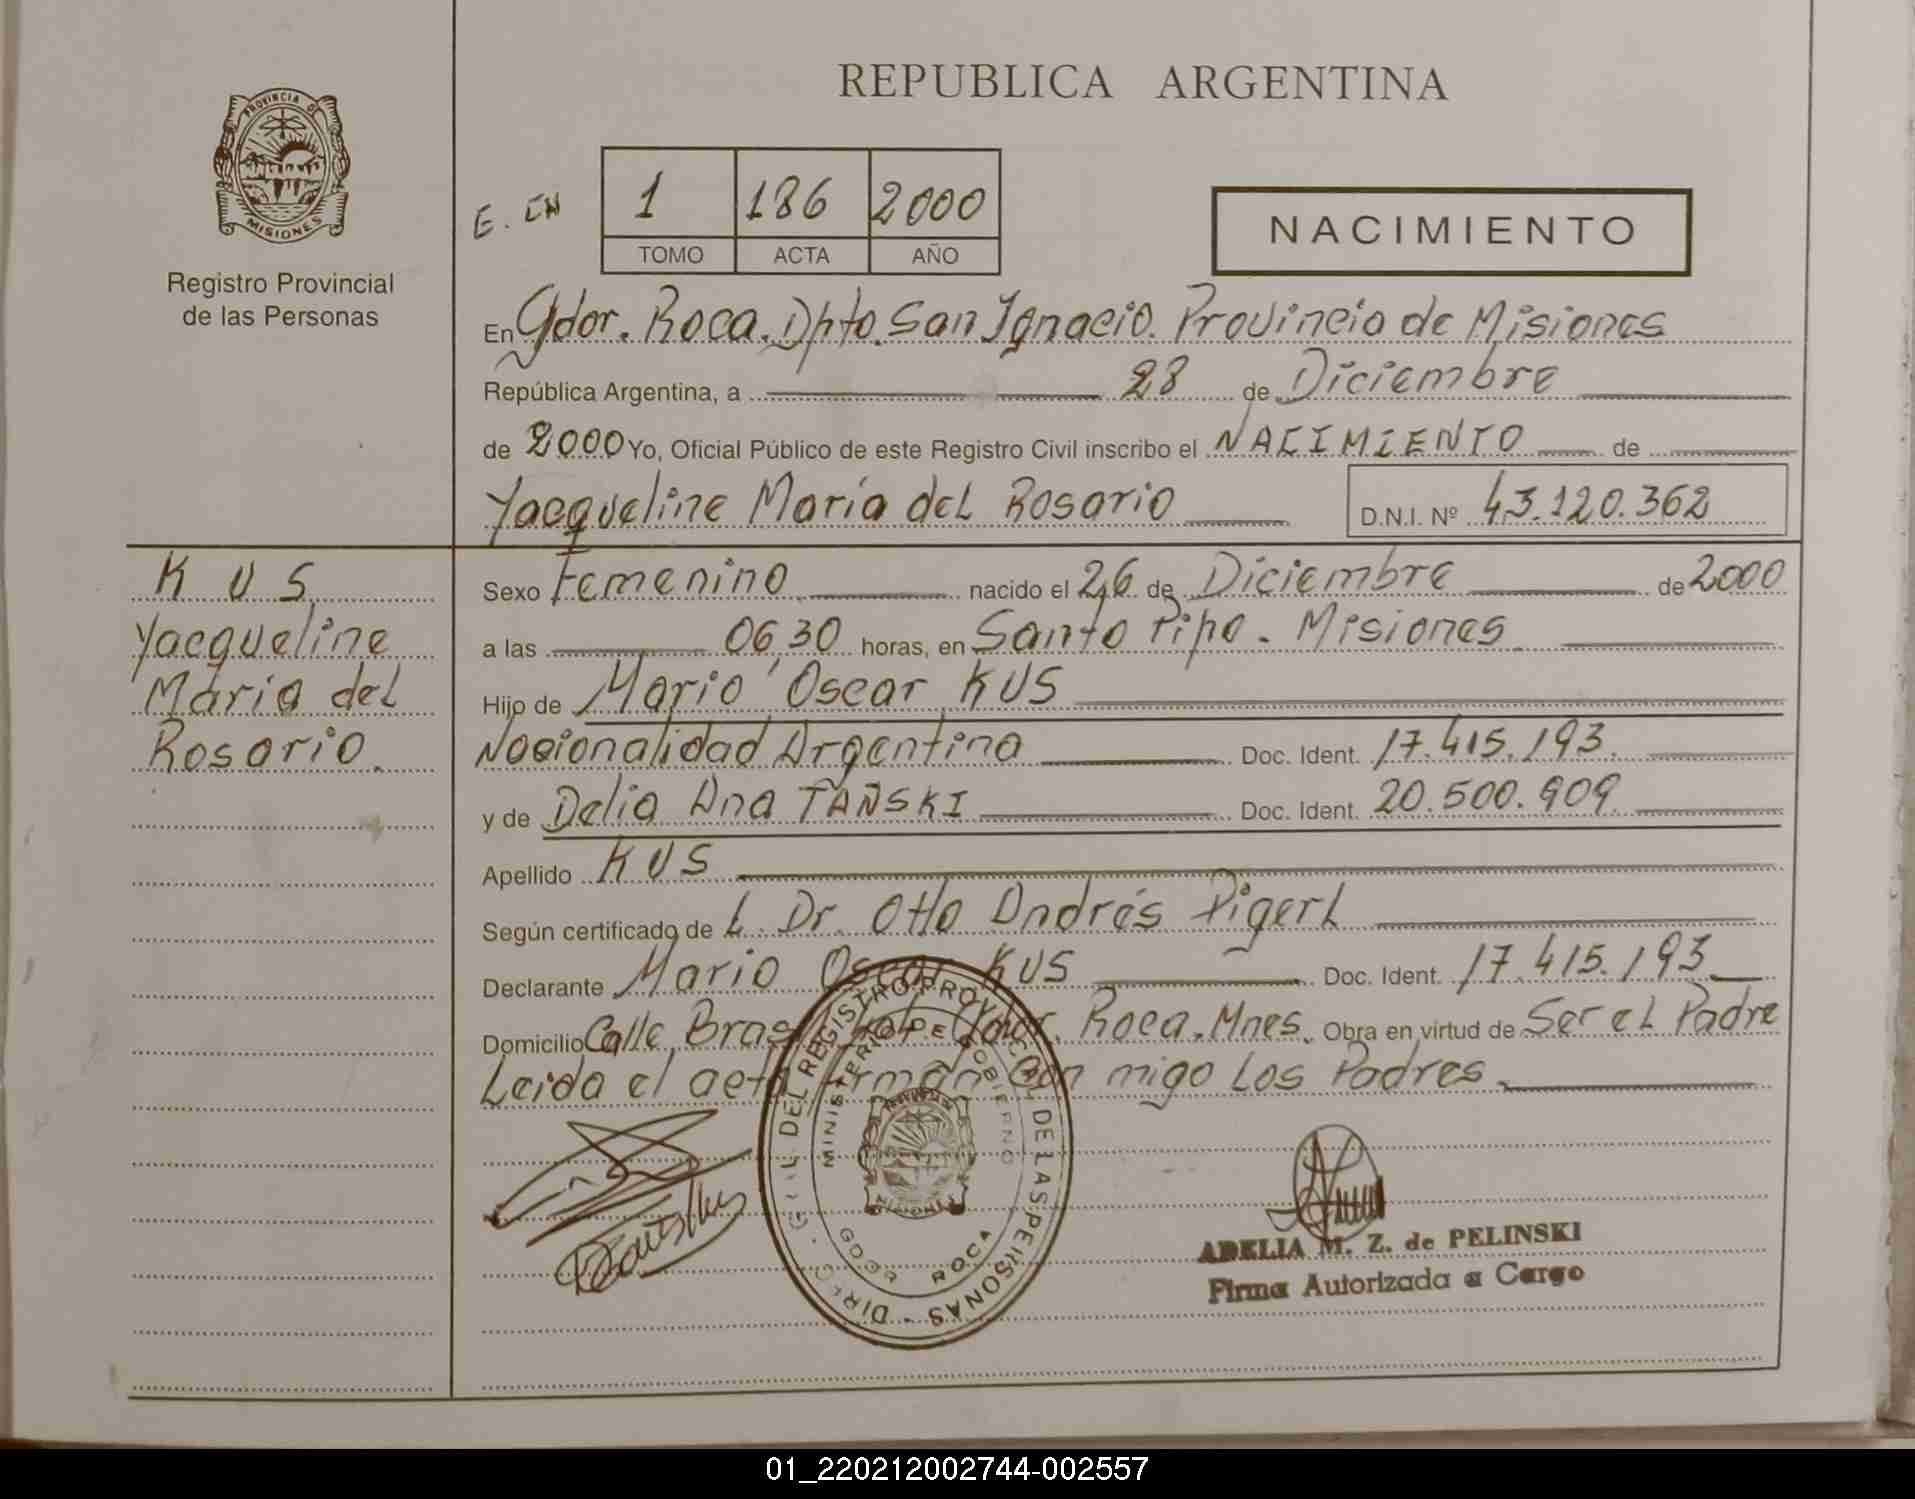 REPUBLICA ARGENTINA
PROVINCIA D
MISIONES
Registro Provincial
de las Personas
E. EN
1 186 2000
TOMO ACTA AÑO
NACIMIENTO
En Gdor. Roca. Dpto. San Ignacio. Provincia de Misiones
República Argentina, a 28 de Diciembre
de 2000 Yo, Oficial Público de este Registro Civil inscribo el NACIMIENTO de
Yacqueline María del Rosario
D.N.I. Nº 43.120.362
KUS
Yacqueline
María del
Rosario.
Sexo Femenino nacido el 26 de Diciembre de 2000
a las 06,30 horas, en Santo Pipo. Misiones
Hijo de Mario Oscar KUS
Nacionalidad Argentina Doc. Ident. 17.415.193.
y de Delia Ana TAÑSKI Doc. Ident. 20.500.909
Apellido KUS
Según certificado de L. Dr. Otto Andrés Pigerl
Declarante Mario Oscar KUS Doc. Ident. 17.415.193
Domicilio Calle Gdor. Roca. Mnes. Obra en virtud de Ser el Padre
Leida el acta firman con migo los Padres.
DEL REGISTRO PROVINCIAL DE LAS PERSONAS
MINISTERIO DE GOBIERNO
MISIONES
GDOR ROCA
ADELIA M. Z. de PELINSKI
Firma Autorizada a Cargo
01_220212002744-002557